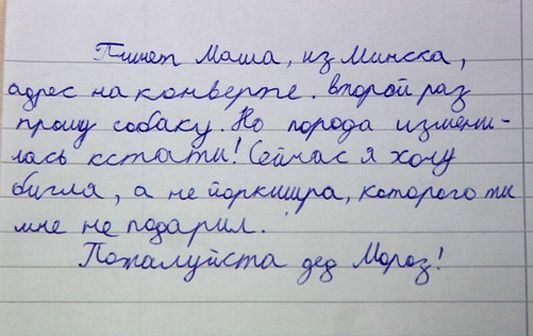 Пишет Маша, из Минска,
адрес на конверте. второй раз
прошу собаку. Но порода измени-
лась кстати! Сейчас я хочу
бигля, а не йоркшира, которого ты
мне не подарил.
Пожалуйста дед Мороз!